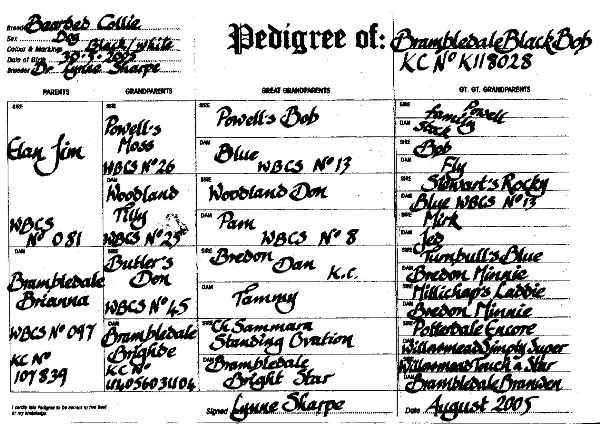 Breed Bearded Collie
Sex Dog
Colour & Markings Black/white
Date of Birth 30.5.2005
Breeder Dr Lynne Sharpe
Pedigree of: Brambledale Black Bob
KC Nº K118028
PARENTS
GRANDPARENTS
GREAT GRANDPARENTS
GT. GT. GRANDPARENTS
SIRE
Elan Jim
WBCS
Nº 081
DAM
Brambledale
Brianna
WBCS Nº 097
KC Nº
107839
SIRE
Powell's
Moss
WBCS Nº 26
DAM
Woodland
Tilly
WBCS Nº 25
SIRE
Butler's
Don
WBCS Nº 45
DAM
Brambledale
Brighde
KC Nº
SIRE
Powell's Bob
DAM
Blue
WBCS Nº 13
SIRE
Woodland Don
DAM
Pam
WBCS Nº 8
SIRE
Bredon
Dan K.C.
DAM
Tammy
SIRE
Ch Sammara
Standing Ovation
DAM
Brambledale
Bright Star
SIRE
Powell
family
Stock
DAM
SIRE
Bob
DAM
Fly
SIRE
Stewart's Rocky
DAM
Blue WBCS Nº 13
SIRE
Mirk
DAM
Jed
SIRE
Turnbull's Blue
DAM
Bredon Minnie
SIRE
Millichap's Laddie
DAM
Bredon Minnie
SIRE
Potterdale Encore
DAM
Willowmead Simply Super
SIRE
Willowmead Touch a Star
DAM
Brambledale Branwen
I certify this Pedigree to be correct to the best
of my knowledge
Signed Lynne Sharpe
Date August 2005